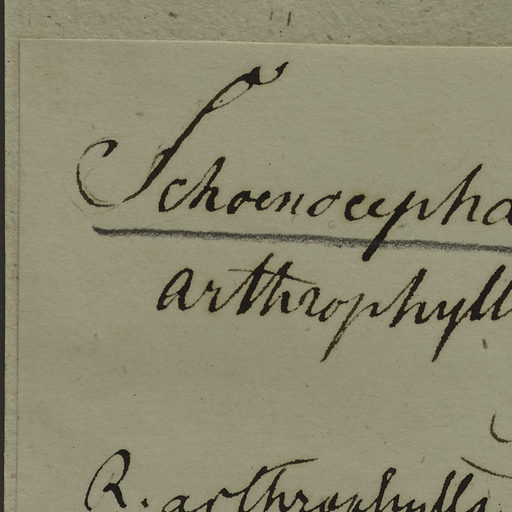 Schoenocepha
arthrophyll
R. arthrophylla